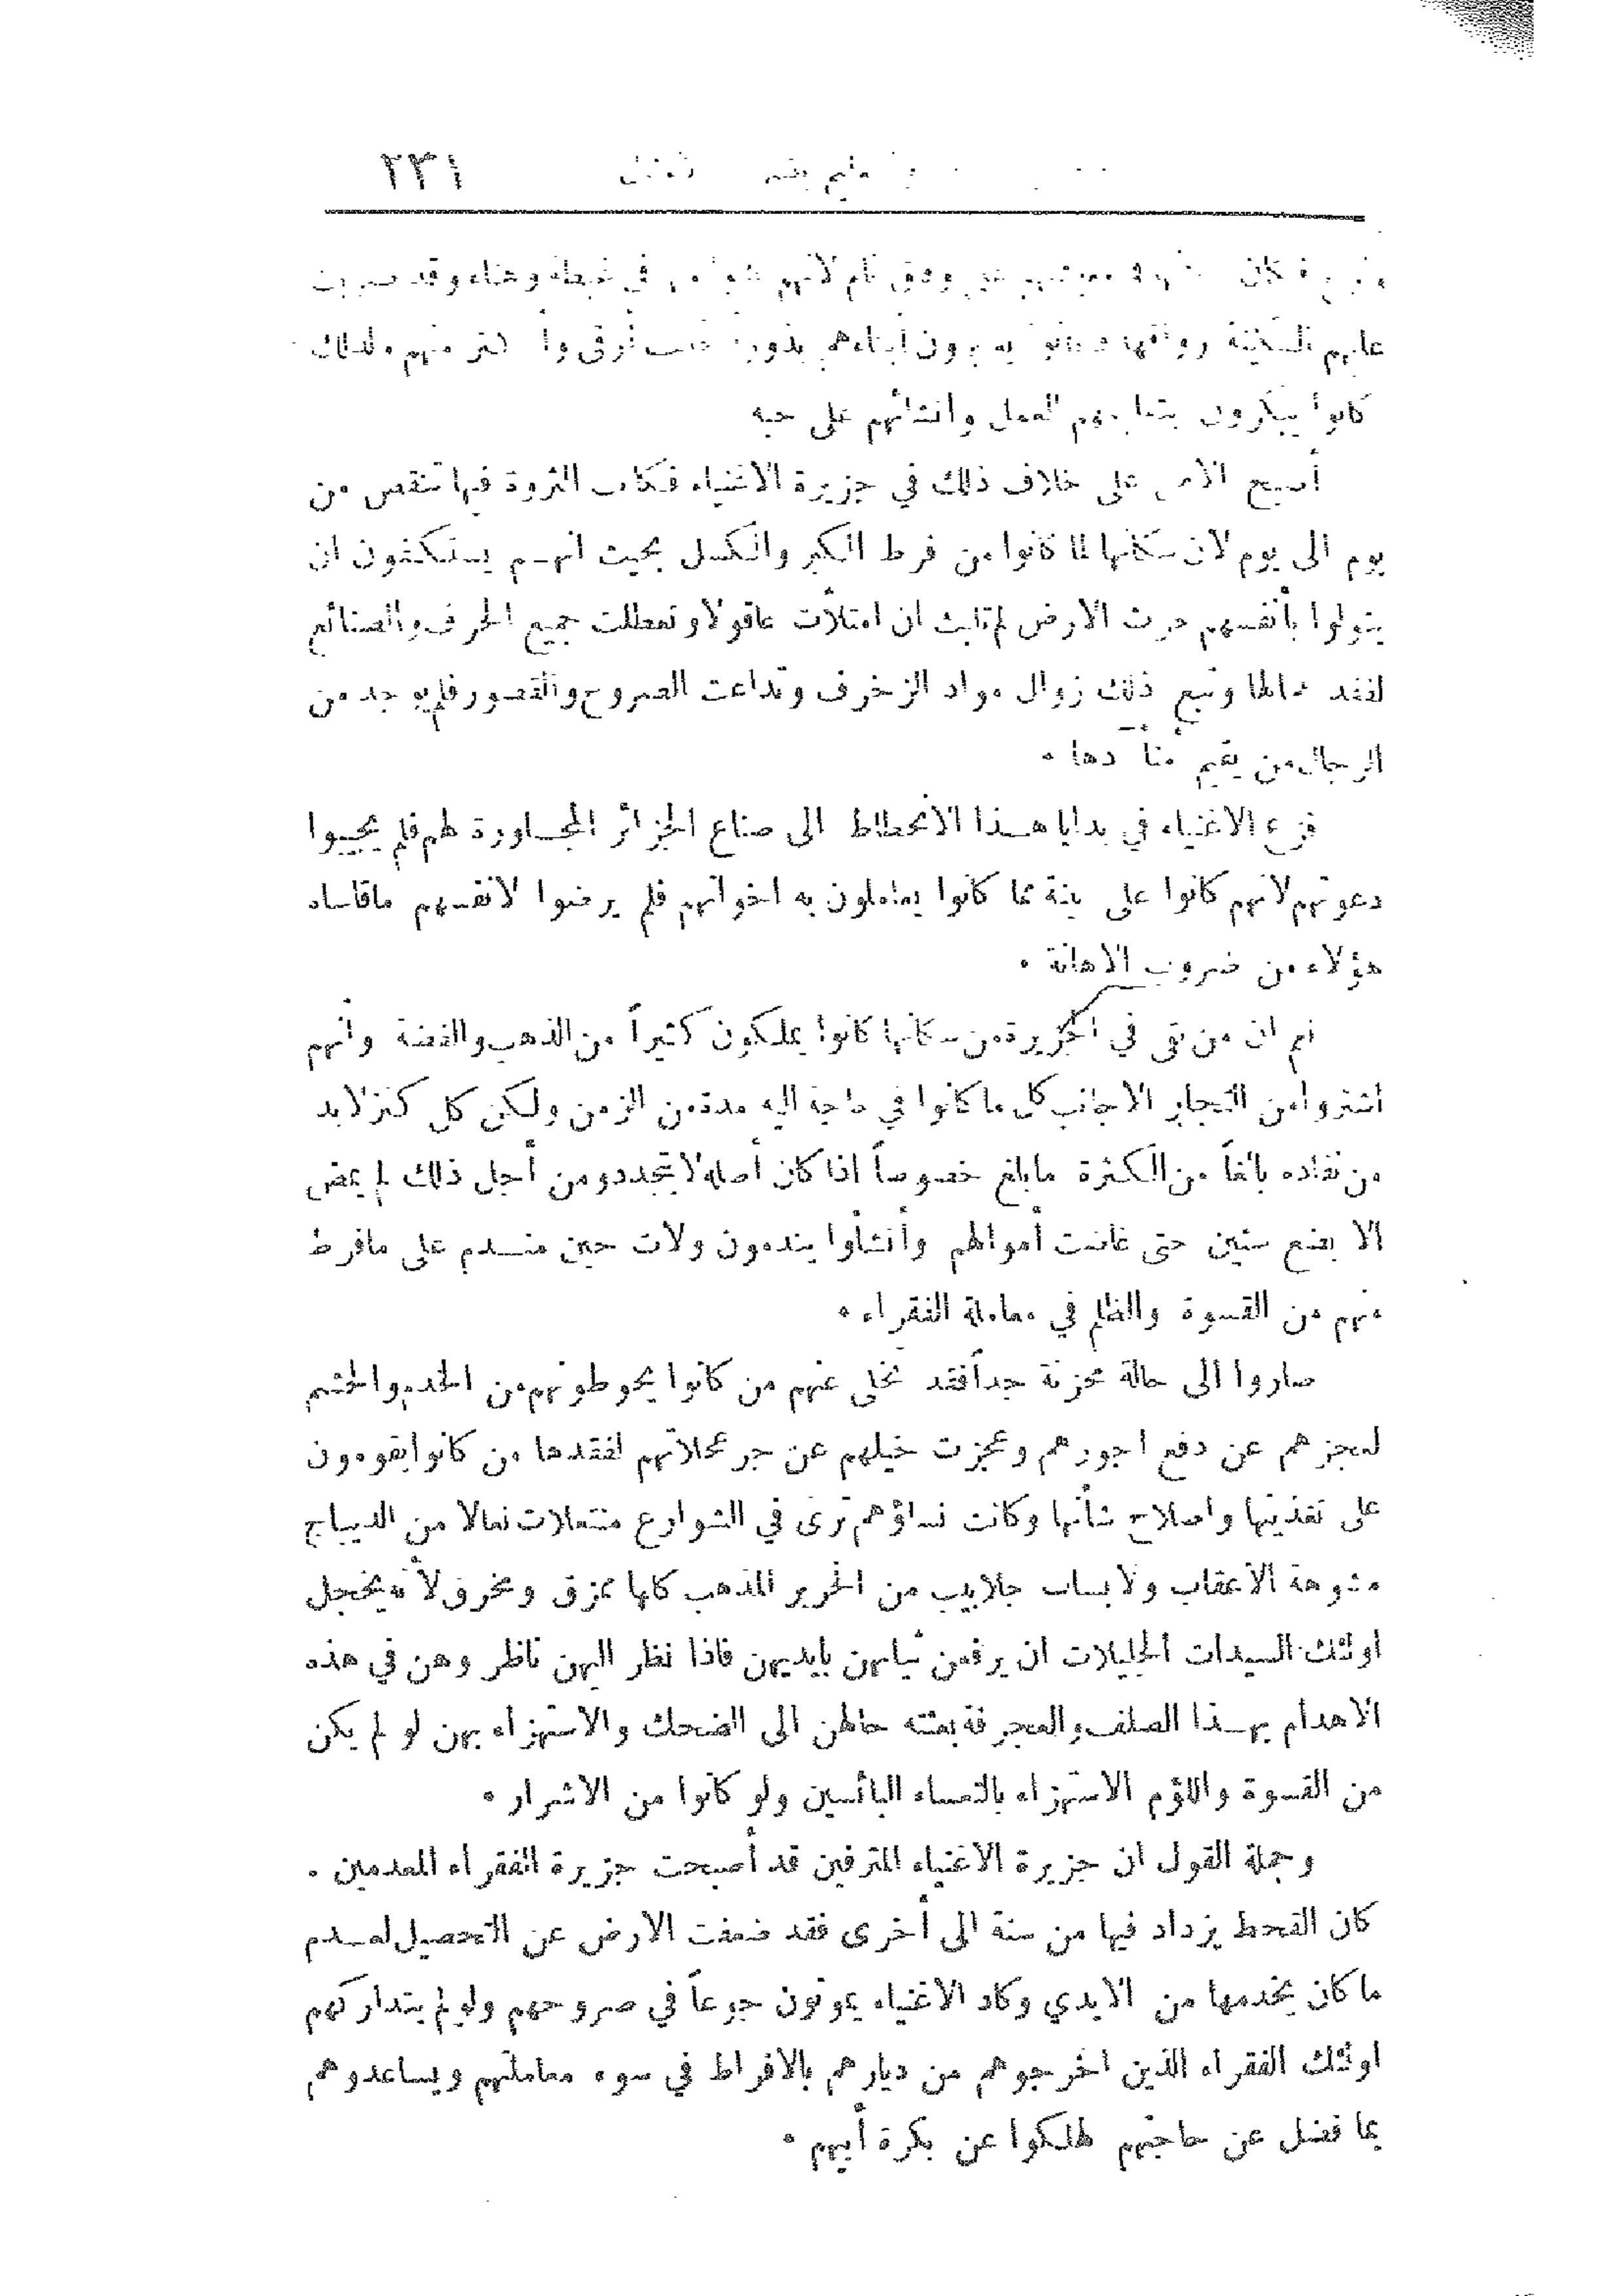 ٢٣١
كان وفق تام لأنهم في غبطة وهناء وقد ضربت
عليهم السكينة رواقها يرون أبناءهم أرق منهم ولذلك
كانوا يبكرون بتعليمهم العمل وانشائهم على حبه
أصبح الامر على خلاف ذلك في جزيرة الاغنياء فكانت الثروة فيها تنقص من
يوم الى يوم لان سكانها لما كانوا من فرط الكبر والكسل بحيث انهـم يستنكفون ان
يتولوا بأنفسهم حرث الارض لم تلبث ان امتلأت عاقولا وتعطلت جميع الحرف والصنائع
لفقد عمالها وتبع ذلك زوال مواد الزخرف وتداعت الصروح والقصور فلم يوجد من
الرجال من يقيم منآدها ٠
فزع الاغنياء في بدايا هـذا الانحطاط الى صناع الجزائر المجـاورة لهم فلم يجيبوا
دعوتهم لانهم كانوا على بينة مما كانوا يعاملون به اخوانهم فلم يرضوا لانفسهم ماقاساه
هؤلاء من ضروب الاهانة ٠
نم ان من بقي في الجزيرة من سكانها كانوا يملكون كثيراً من الذهب والفضة وانهم
اشتروا من التجار الاجانب كل ما كانوا في حاجة اليه مدة من الزمن ولكن كل كنز لا بد
من نفاده بالغاً من الكثرة مابلغ خصوصاً اذا كان أصله لا يتجدد ومن أجل ذلك لم يمض
الا بضع سنين حتى غاضت أموالهم وأنشأوا يندمون ولات حين منـدم على مافرط
منهم من القسوة والظلم في معاملة الفقراء ٠
صاروا الى حالة محزنة جداً فقد تخلى عنهم من كانوا يحوطونهم من الخدم والحشم
لعجزهم عن دفع اجورهم وعجزت خيلهم عن جر عجلاتهم لفقدها من كانوا يقومون
على تغذيتها واصلاح شأنها وكانت نساؤهم ترى في الشوارع منتعلات نعالا من الديباج
مشوهة الاعقاب ولابسات جلابيب من الحرير المذهب كلها مزق وخرق لأنه يخجل
اولئك السيدات الجليلات ان يرفعن ثيابهن بايديهن فاذا نظر اليهن ناظر وهن في هذه
الاهدام بهـذا الصلف والعجرفة بعثته حاطن الى الضحك والاستهزاء بهن لو لم يكن
من القسوة واللؤم الاستهزاء بالتعساء البائسين ولو كانوا من الاشرار ٠
وجملة القول ان جزيرة الاغنياء المترفين قد أصبحت جزيرة الفقراء المعدمين .
كان القحط يزداد فيها من سنة الى أخرى فقد ضعفت الارض عن التحصيل لعـدم
ما كان يخدمها من الايدي وكاد الاغنياء يموتون جوعاً في صروحهم ولو لم يتداركهم
اولئك الفقراء الذين اخرجوهم من ديارهم بالافراط في سوء معاملتهم ويساعدوهم
بما فضل عن حاجتهم لهلكوا عن بكرة أبيهم ٠